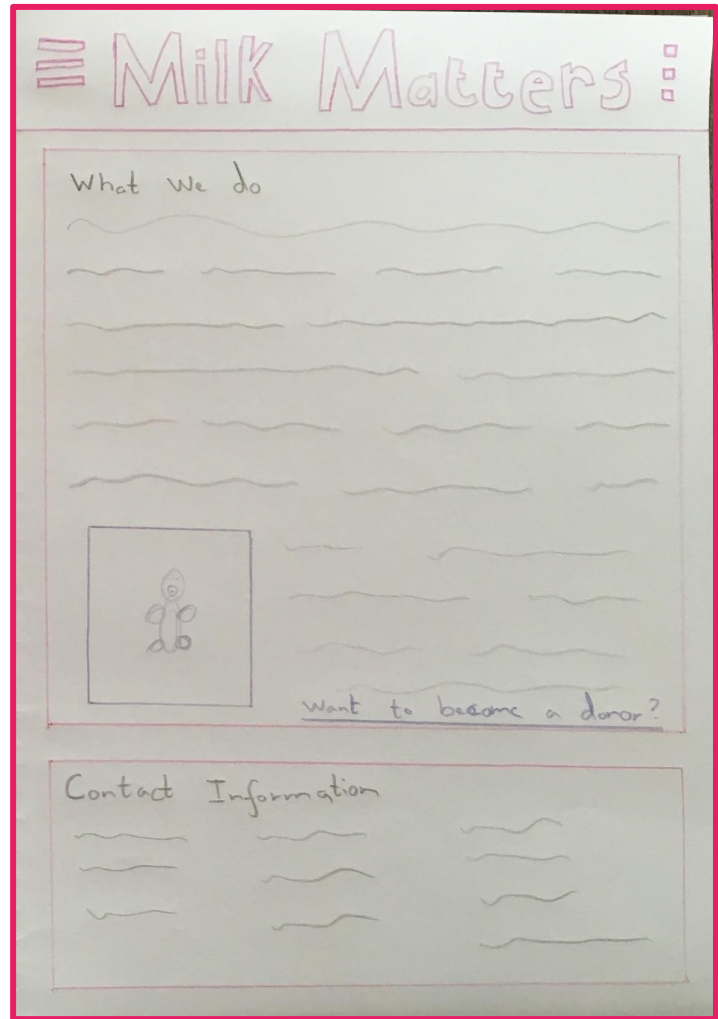 Milk Matters
What we do
Want to become a donor?
Contact Information